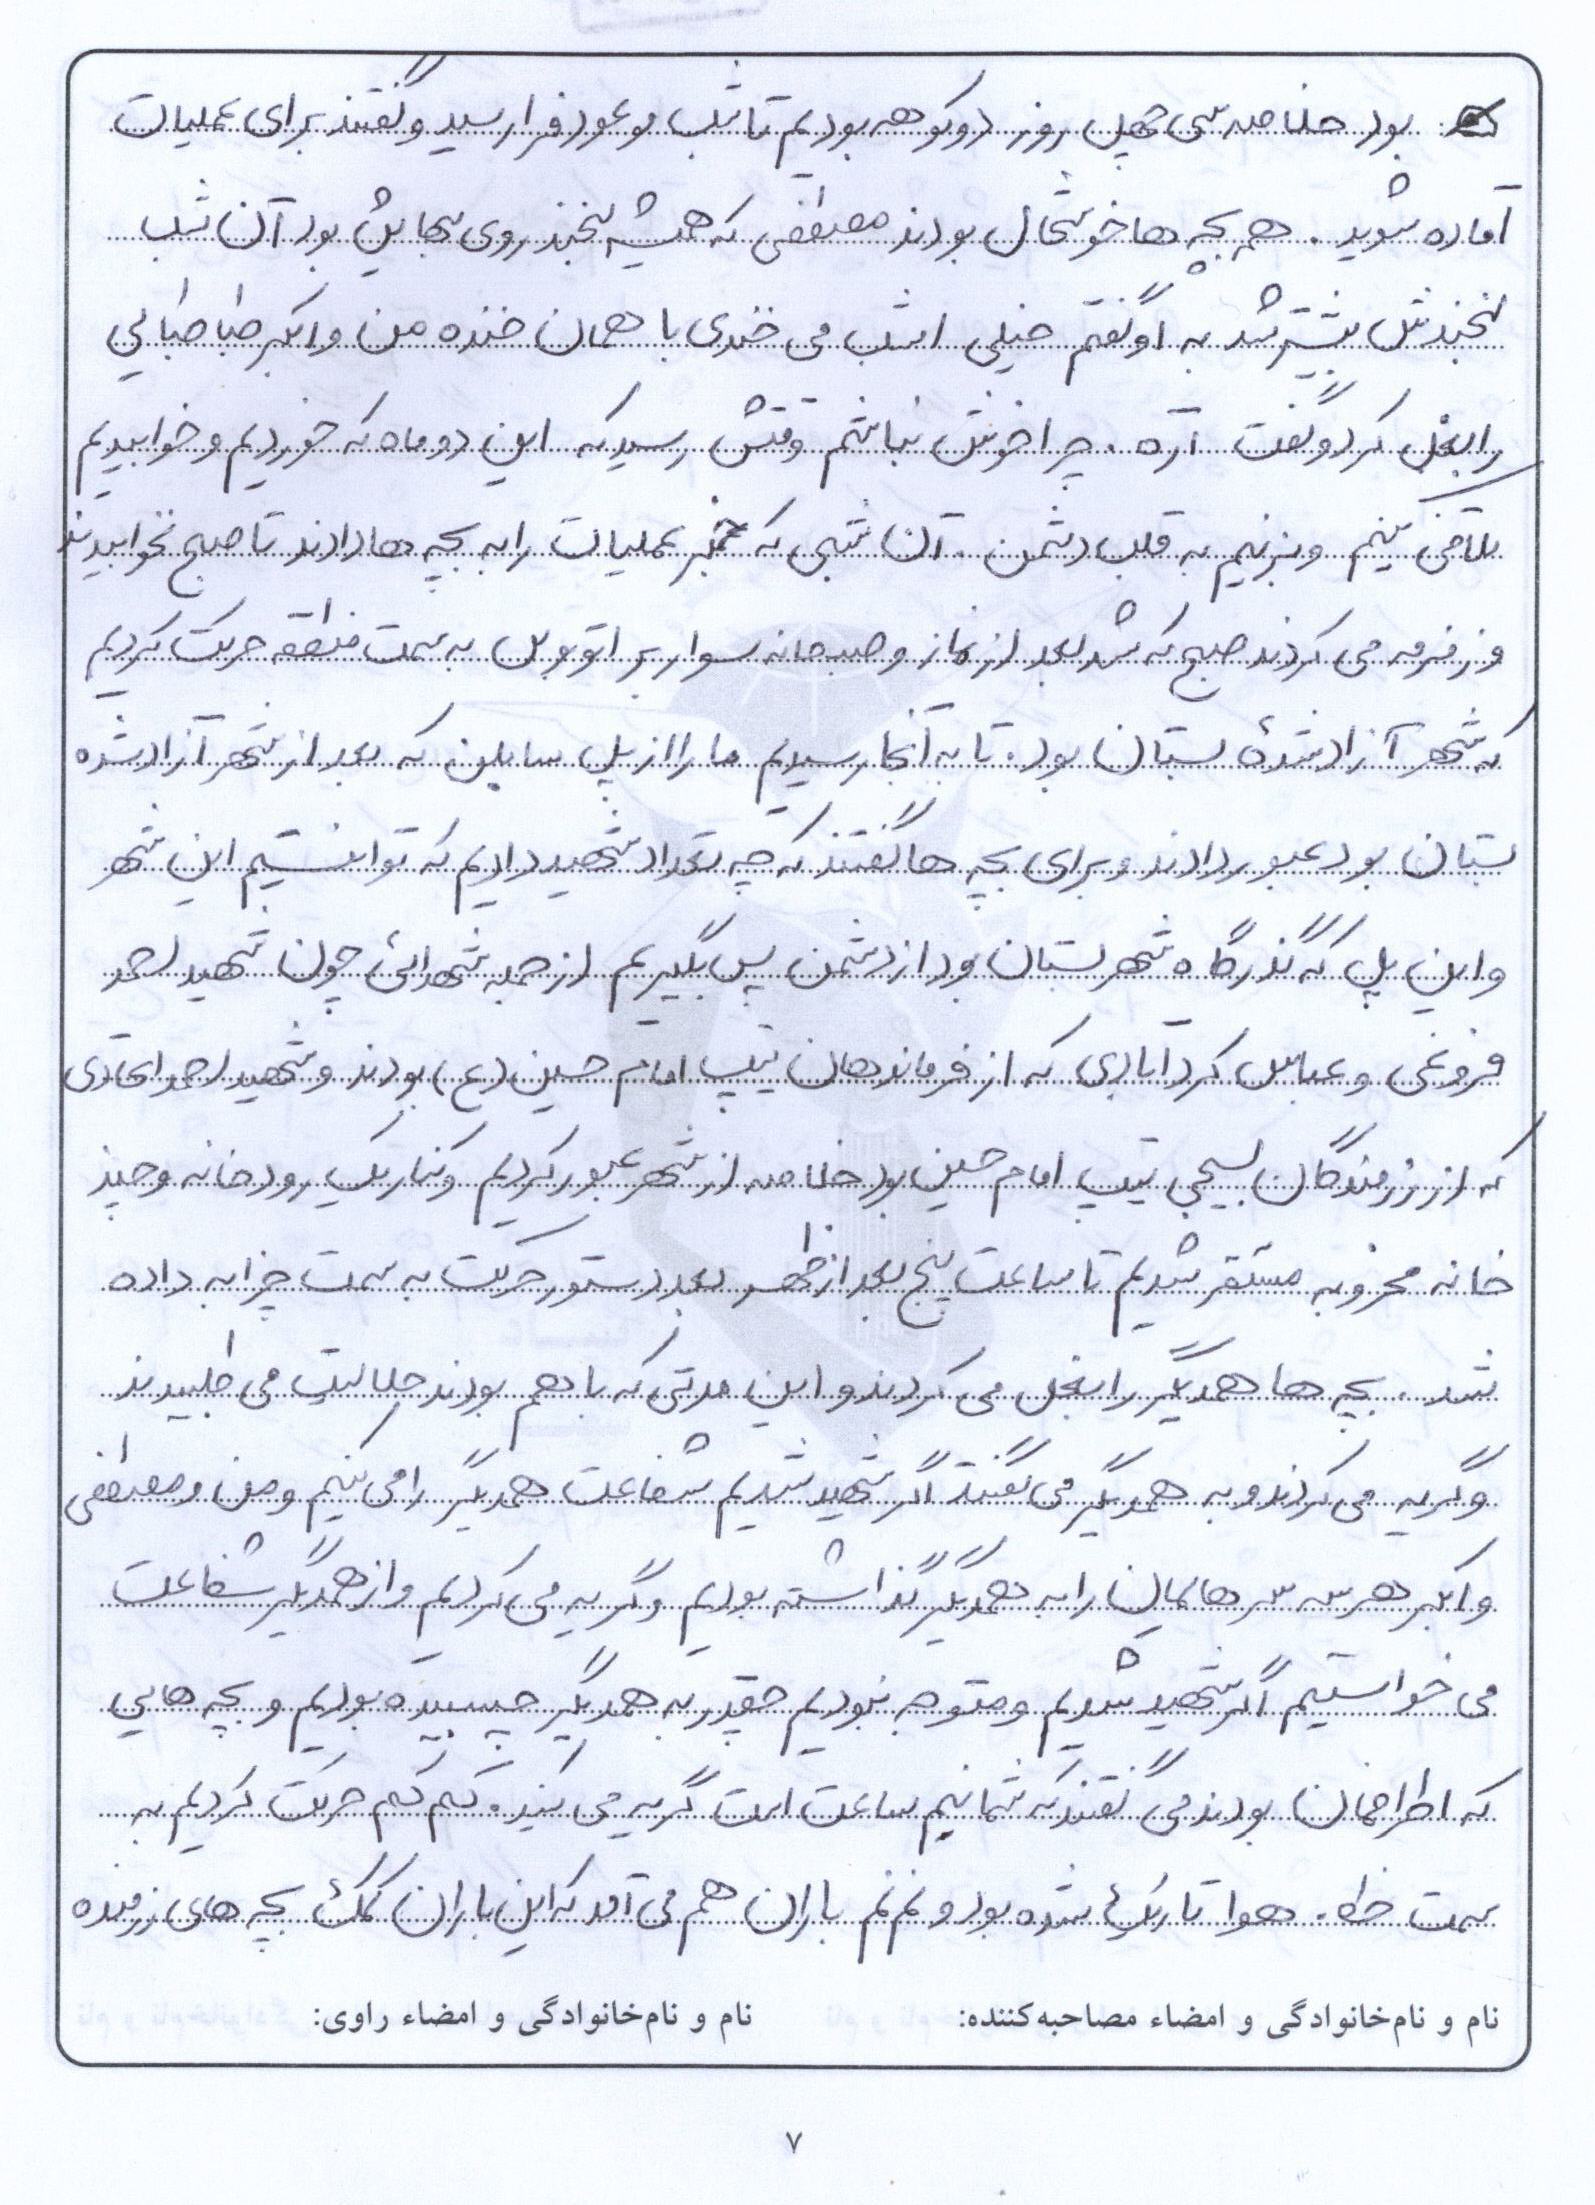 بود خلاصه سی چهل روز دوکوهه بودیم تا شب موعود فرا رسید و گفتند برای عملیات
آماده شوید. همه بچه ها خوشحال بودند مصطفی که همیشه لبخند روی لبهایش بود آن شب
لبخندش بیشتر شد به او گفتم خیلی امشب می خندی با همان خنده من و اکبر طباطبائی
را بغل کرد و گفت آره. چرا خوش نباشم وقتش رسید که این دو ماه که خوردیم و خوابیدیم
تلافی کنیم و بزنیم به قلب دشمن. آن شبی که خبر عملیات را به بچه ها دادند تا صبح نخوابیدند
و زمزمه می کردند صبح که شد بعد از نماز و صبحانه سوار بر اتوبوس به سمت منطقه حرکت کردیم
که شهر آزاد شدهٔ بستان بود. تا به آنجا رسیدیم ما را از پل سابلن که بعد از شهر آزاد شده
بستان بود عبور دادند و برای بچه ها گفتند که چه تعداد شهید دادیم که توانستیم این شهر
و این پل که گذرگاه شهر بستان بود از دشمن پس بگیریم از جمله شهدائی چون شهید احمد
فروغی و عباس کردآبادی که از فرماندهان تیپ امام حسین (ع) بودند و شهید احمد اتحادی
که از رزمندگان بسیجی تیپ امام حسین بود خلاصه از شهر عبور کردیم و کنار یک رودخانه و چند
خانه مخروبه مستقر شدیم تا ساعت پنج بعد از ظهر بعد دستور حرکت به سمت چزابه داده
شد. بچه ها همدیگر را بغل می کردند و این مدتی که با هم بودند حلالیت می طلبیدند
و گریه می کردند و به همدیگر می گفتند اگر شهید شدیم شفاعت همدیگر را می کنیم و من و مصطفی
و اکبر هر سه سرهایمان را به همدیگر گذاشته بودیم و گریه می کردیم و از همدیگر شفاعت
می خواستیم اگر شهید شدیم و متوجه نبودیم چقدر به همدیگر چسبیده بودیم و بچه هایی
که اطرافمان بودند می گفتند که شما نیم ساعت است گریه می کنید. کم کم حرکت کردیم به
سمت خط. هوا تاریک شده بود و نم نم باران هم می آمد که این باران کمک بچه های رزمنده
نام و نام‌خانوادگی و امضاء مصاحبه‌کننده: نام و نام‌خانوادگی و امضاء راوی:
۷